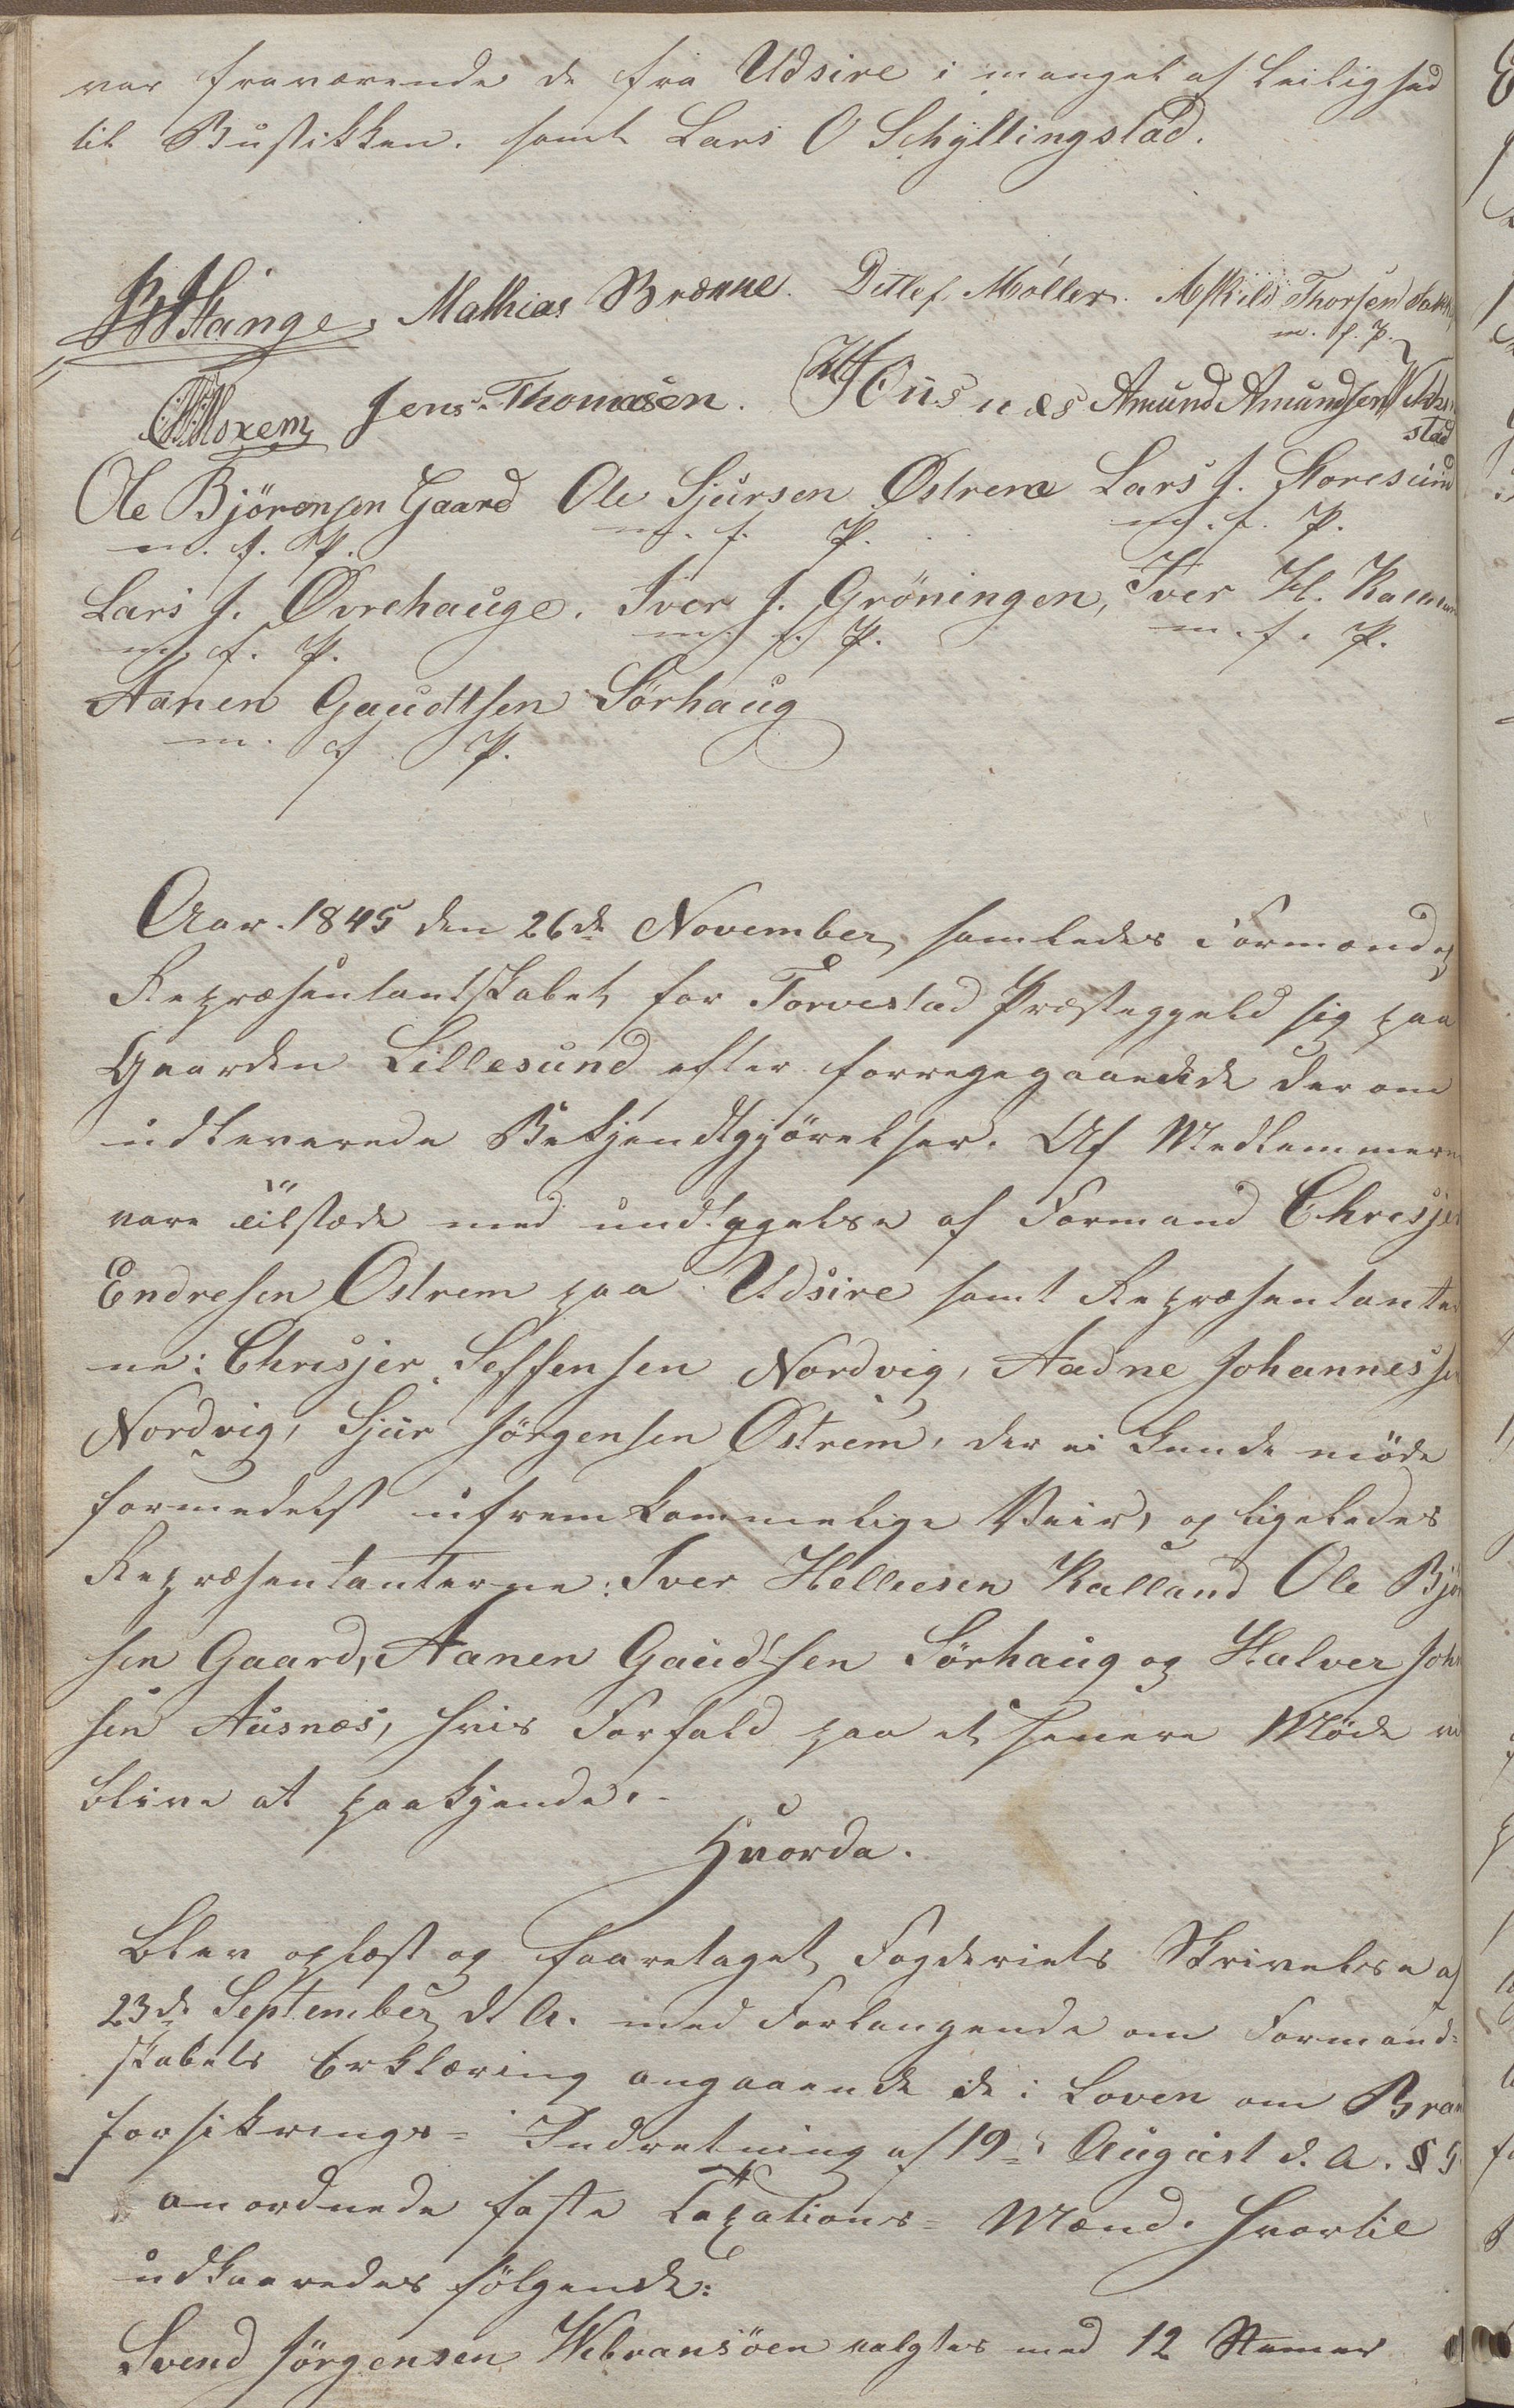 var fraværende de fra Udsire i mangel af Leilighed
til Bustikken. samt Lars O Schyllingstad.
Stange, Mathias Brænne. Ditlef Møller. Askild Thorsen
m. f. P.
Jens Thomasen. Husnæs Amund Amundsen
stad
Ole Bjørensen Gaard Ole Sjursen Østrem Lars J. Storesund
m. f. P. m. f. P. m. f. P.
Lars J. Øvrehauge. Iver J. Grøningen, Iver H.
m. f. P. m. f. P. m. f. P.
Aanen Gaudtsen Sørhaug
m. f. P.
Aar. 1845 den 26de November samledes Formænd og
Repræsentantskabet for Torvestad Præstegjeld sig paa
Gaarden Lillesund efter forregegaaende derom
udleverede Bekjendtgjørelser. Af Medlemmerne
vare tilstæde med undtagelse af Formand Chresjer
Endresen Østrem paa Udsire samt Repræsentanter
ne: Chresjer Seffensen Nordvig, Aadne Johannessen
Nordvig, Sjur Jørgensen Østrem, der ei kunde møde
formedelst ufremkommelige Veir, og ligeledes
Repræsentanterne: Iver Helliesen Kalland Ole Bjør
sen Gaard, Aanen Gaudtsen Sørhaug og Halver John
sen Ausnæs, hvis Forfald paa et senere Møde vil
blive at paakjende.
Hvorda.
Blev oplæst og foretaget Fogderiets Skrivelse af
23de September d. A. med Forlangende om Formand-
skabets Erklæring angaaende de i Loven om Brand
forsikrings- Indretning af 19de August d. A. § 5
anordnede faste Taxations- Mænd. Hvortil
udkaaredes følgende:
Svend Jørgensen Wibransøen valgtes med 12 Stemer